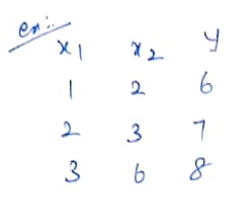 ex:-
x1 x2 y
1 2 6
2 3 7
3 6 8